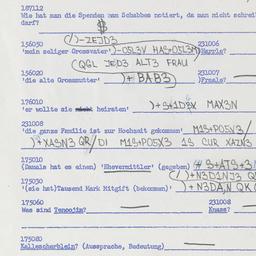 187112
Wie hat man die Spenden am Schabbes notiert, da man nicht schrei
darf?
(/)-ZEJD3
156050
'mein seliger Grossvater')-OSL3V HAS+OSL3R
231006
)Harele?
(QGL JED3 ALT3 FRAU
156020
'die alte Grossmutter' )+BAB3)
231007
)Fraale?
176010
'er wollte sie nicht heiraten' MAX3N
231008
'die ganze Familie ist zur Hochzeit gekommen' M1S+POSV3/
)+XASN3 QR/DI M1S+POSX3 1S CUR XAZN3
175010
(Damals hat es einen) 'Ehevermittler' (gegeben) # S+ATS+3
175030
'(sie hat)Tausend Mark Mitgift (bekommen)' )+N3DAN QK(
175060
Was sind Tenoojim?
231008
Knass?
175080
Kallescherblein? (Aussprache, Bedeutung)